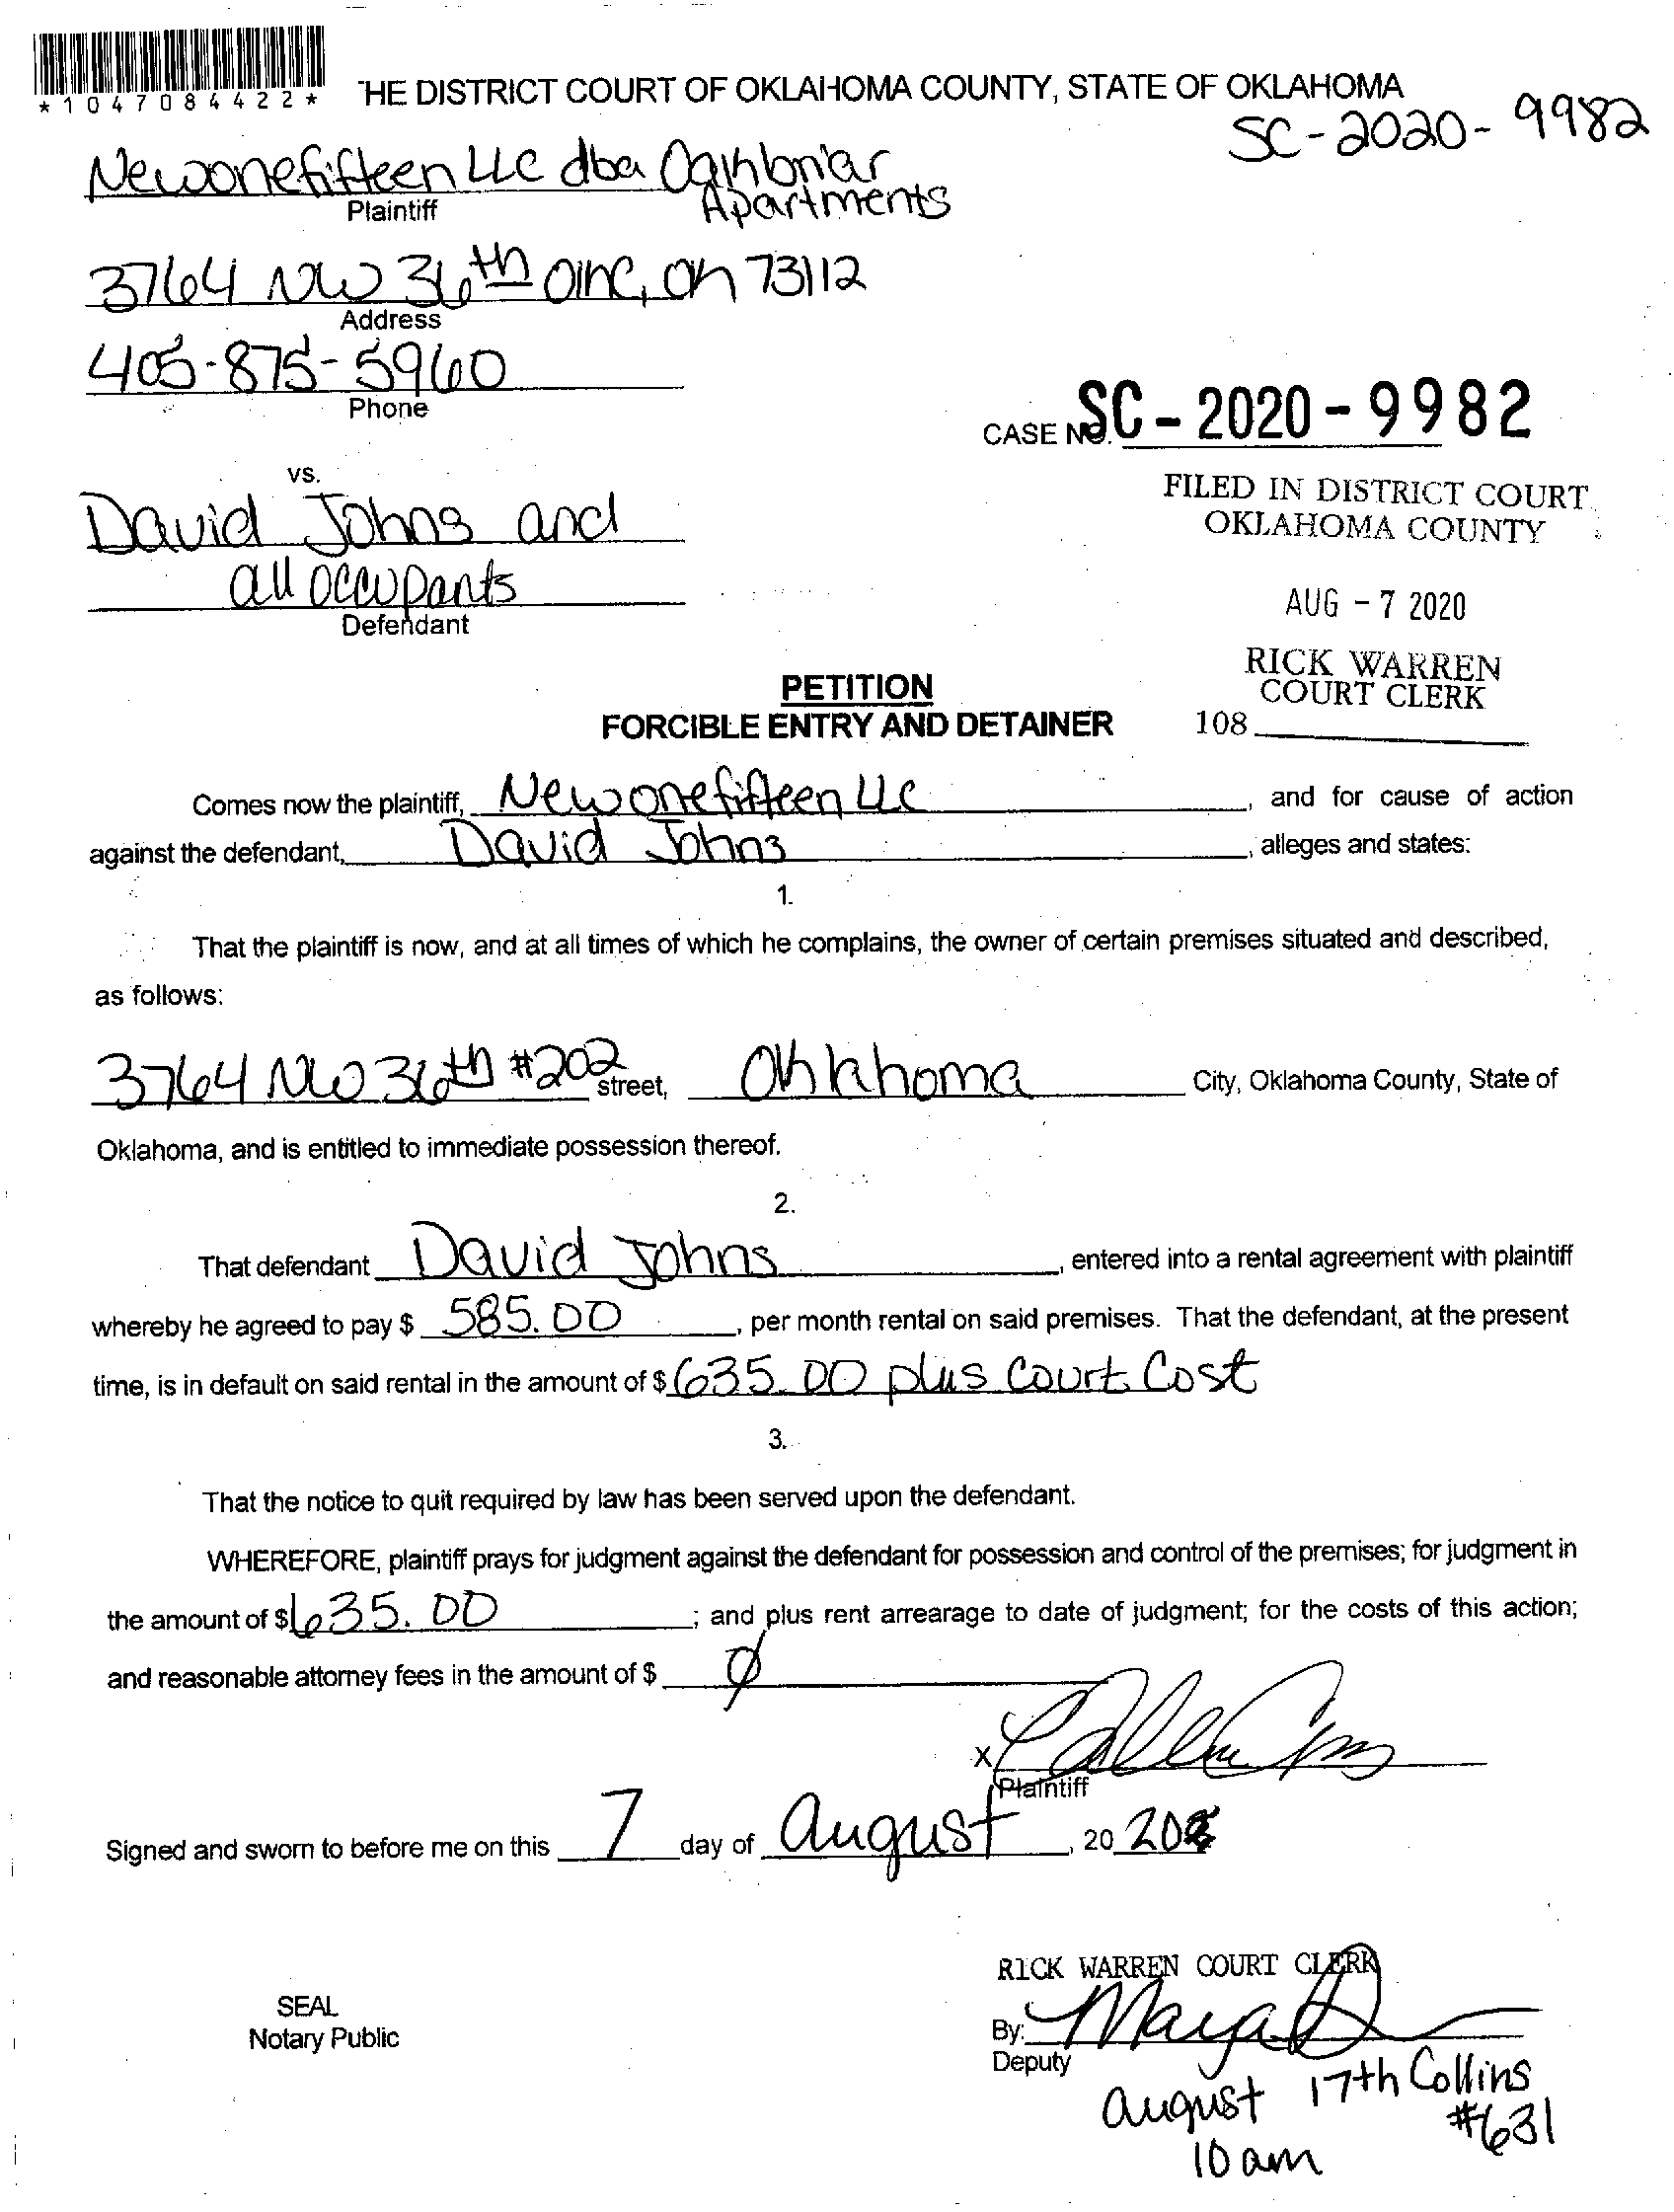 *1047084422*
THE DISTRICT COURT OF OKLAHOMA COUNTY, STATE OF OKLAHOMA
SC-2020-9982
Newonefifteen LLC dba Oakbriar
Apartments
Plaintiff
3764 NW 36th OKC, OK 73112
Address
405-875-5960
Phone
CASE NO. SC-2020-9982
vs.
FILED IN DISTRICT COURT
OKLAHOMA COUNTY
David Johns and
all occupants
Defendant
AUG - 7 2020
RICK WARREN
COURT CLERK
108
PETITION
FORCIBLE ENTRY AND DETAINER
Comes now the plaintiff, Newonefifteen LLC, and for cause of action
against the defendant, David Johns, alleges and states:
1.
That the plaintiff is now, and at all times of which he complains, the owner of certain premises situated and described,
as follows:
3764 NW 36th #202 street, Oklahoma City, Oklahoma County, State of
Oklahoma, and is entitled to immediate possession thereof.
2.
That defendant David Johns, entered into a rental agreement with plaintiff
whereby he agreed to pay $ 585.00, per month rental on said premises. That the defendant, at the present
time, is in default on said rental in the amount of $ 635.00 plus Court Cost
3.
That the notice to quit required by law has been served upon the defendant.
WHEREFORE, plaintiff prays for judgment against the defendant for possession and control of the premises; for judgment in
the amount of $ 635.00; and plus rent arrearage to date of judgment; for the costs of this action;
and reasonable attorney fees in the amount of $ 0
X
Plaintiff
Signed and sworn to before me on this 7 day of August, 20 20
RICK WARREN COURT CLERK
SEAL
Notary Public
By: Maya
Deputy
August 17th Collins
#631
10 am